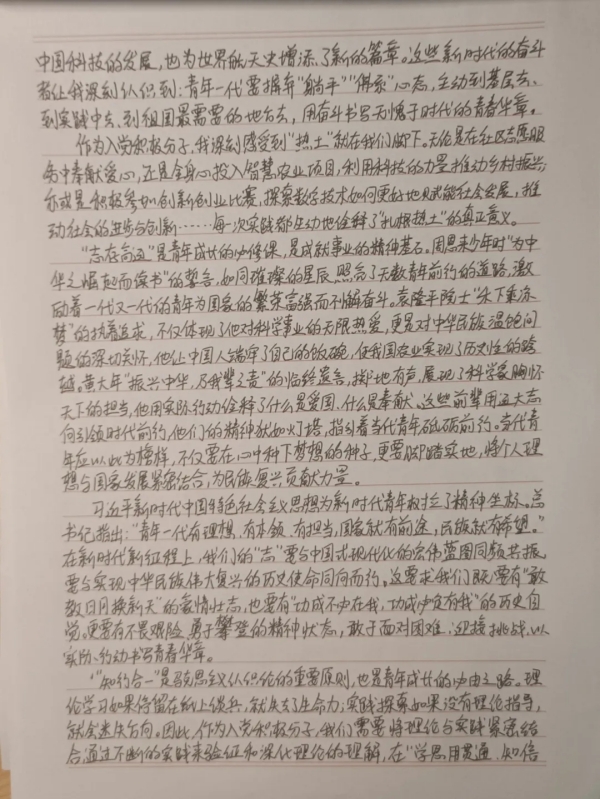 中国科技的发展,也为世界航天史增添了新的篇章。这些新时代的奋斗
者让我深刻认识到:青年一代要摒弃"躺平""佛系"心态,主动到基层去、
到实践中去、到祖国最需要的地方去,用奋斗书写无愧于时代的青春华章。
作为入党积极分子,我深刻感受到"热土"就在我们脚下。无论是在社区志愿服
务中奉献爱心,还是全身心投入智慧农业项目,利用科技的力量推动乡村振兴;
亦或是积极参加创新创业比赛,探索数字技术如何更好地赋能社会发展,推
动社会的进步与创新……每一次实践都生动地诠释了"扎根热土"的真正意义。
"志存高远"是青年成长的必修课,是成就事业的精神基石。周恩来少年时"为中
华之崛起而读书"的誓言,如同璀璨的星辰,照亮了无数青年前行的道路,激
励着一代又一代的青年为国家的繁荣富强而不懈奋斗。袁隆平院士"禾下乘凉
梦"的执着追求,不仅体现了他对科学事业的无限热爱,更是对中华民族温饱问
题的深切关怀,他让中国人端牢了自己的饭碗,使我国农业实现了历史性的跨
越。黄大年"振兴中华,乃我辈之责"的临终遗言,掷地有声,展现了科学家胸怀
天下的担当,他用实际行动诠释了什么是爱国、什么是奉献。这些前辈用远大志
向引领时代前行,他们的精神犹如灯塔,指引着当代青年砥砺前行。当代青
年应以此为榜样,不仅要在心中种下梦想的种子,更要脚踏实地,将个人理
想与国家发展紧密结合,为民族复兴贡献力量。
习近平新时代中国特色社会主义思想为新时代青年树立了精神坐标。总
书记指出:"青年一代有理想、有本领、有担当,国家就有前途,民族就有希望。"
在新时代新征程上,我们的"志"要与中国式现代化的宏伟蓝图同频共振,
要与实现中华民族伟大复兴的历史使命同向而行。这要求我们既要有"敢
教日月换新天"的豪情壮志,也要有"功成不必在我,功成必定有我"的历史自
觉。更要有不畏艰险、勇于攀登的精神状态,敢于面对困难、迎接挑战,以
实际行动书写青春华章。
"知行合一"是马克思主义认识论的重要原则,也是青年成长的必由之路。理
论学习如果停留在纸上谈兵,就失去了生命力;实践探索如果没有理论指导,
就会迷失方向。因此,作为入党积极分子,我们需要将理论与实践紧密结
合,通过不断的实践来验证和深化理论的理解,在"学思用贯通、知信